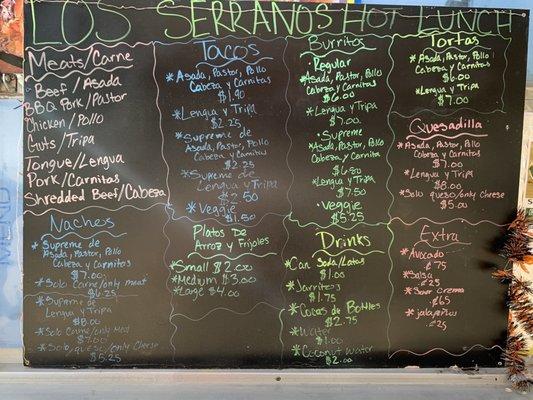 LOS SERRANOS HOT LUNCH
Meats/Carne
Beef/Asada
BBQ Pork/Pastor
Chicken/Pollo
Guts/Tripa
Tongue/Lengua
Pork/Carnitas
Shredded Beef/Cabeza
Nachos
*Supreme de
Asada, Pastor, Pollo
Cabeza y Carnitas
$7.00
*Solo carne/only meat
$6.25
*Supreme de
Lengua y Tripa
$8.00
Solo Carne/only Meat
$7.00
*Solo, queso/only Cheese
$5.25
Tacos
*Asada, Pastor, Pollo
Cabeza y Carnitas
$1.90
*Lengua y Tripa
$2.25
*Supreme de
Asada, Pastor, Pollo
Cabeza y Carnitas
$2.25
*Supreme de
Lengua y Tripa
$2.50
*Veggie
$1.50
Platos De
Arroz y Frijoles
*Small $2.00
*Medium $3.00
*Large $4.00
Burritos
*Regular
Asada, Pastor, Pollo
Cabeza y Carnitas
$6.00
*Lengua y Tripa
$7.00
*Supreme
Asada, Pastor, Pollo,
Cabeza y Carnita
$6.50
*Lengua y Tripa
$7.50
*Veggie
$5.25
Drinks
*Can Soda/Latas
$1.00
*Jarritos
$1.75
*Cocas de Bottles
$2.75
*Water
$1.00
*Coconut Water
$2.00
Tortas
*Asada, Pastor, Pollo
Cabeza y Carnitas
$6.00
*Lengua y Tripa
$7.00
Quesadilla
*Asada, Pastor, Pollo
Cabeza y Carnitas
$7.00
*Lengua y Tripa
$8.00
*Solo queso/only Cheese
$5.00
Extra
*Avocado
¢75
*Salsa
¢25
*Sour Crema
¢65
*jalapeños
¢25
MENU